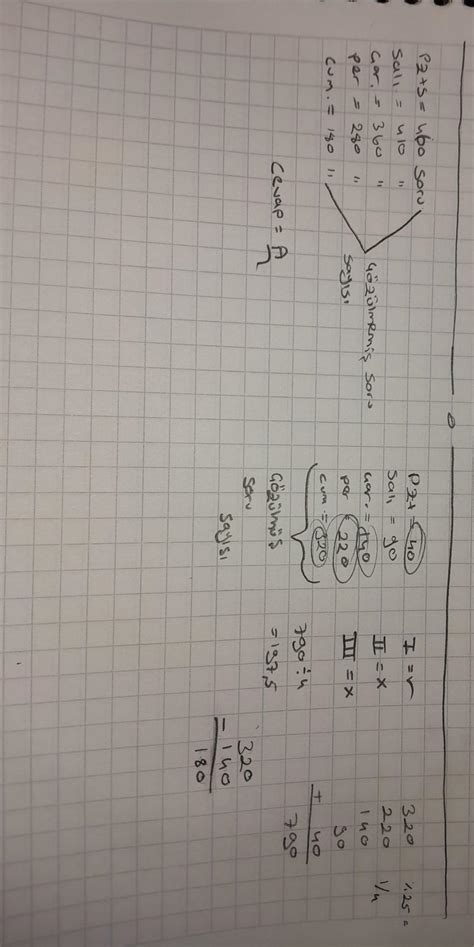 Pzts = 460 soru
Salı. = 410 "
Çar. = 360 "
per = 280 "
Cum. = 180 "
Çözülmemiş soru
sayısı
Cevap = A
Pzt = 40
Salı = 90
Çar. = 140
per = 220
cum. = 320
Çözülmüş
soru
sayısı
I = ✓
II = x
III = x
790 ÷ 4
= 197,5
320
- 140
180
320
220
140
90
+ 40
790
%25 =
1/4